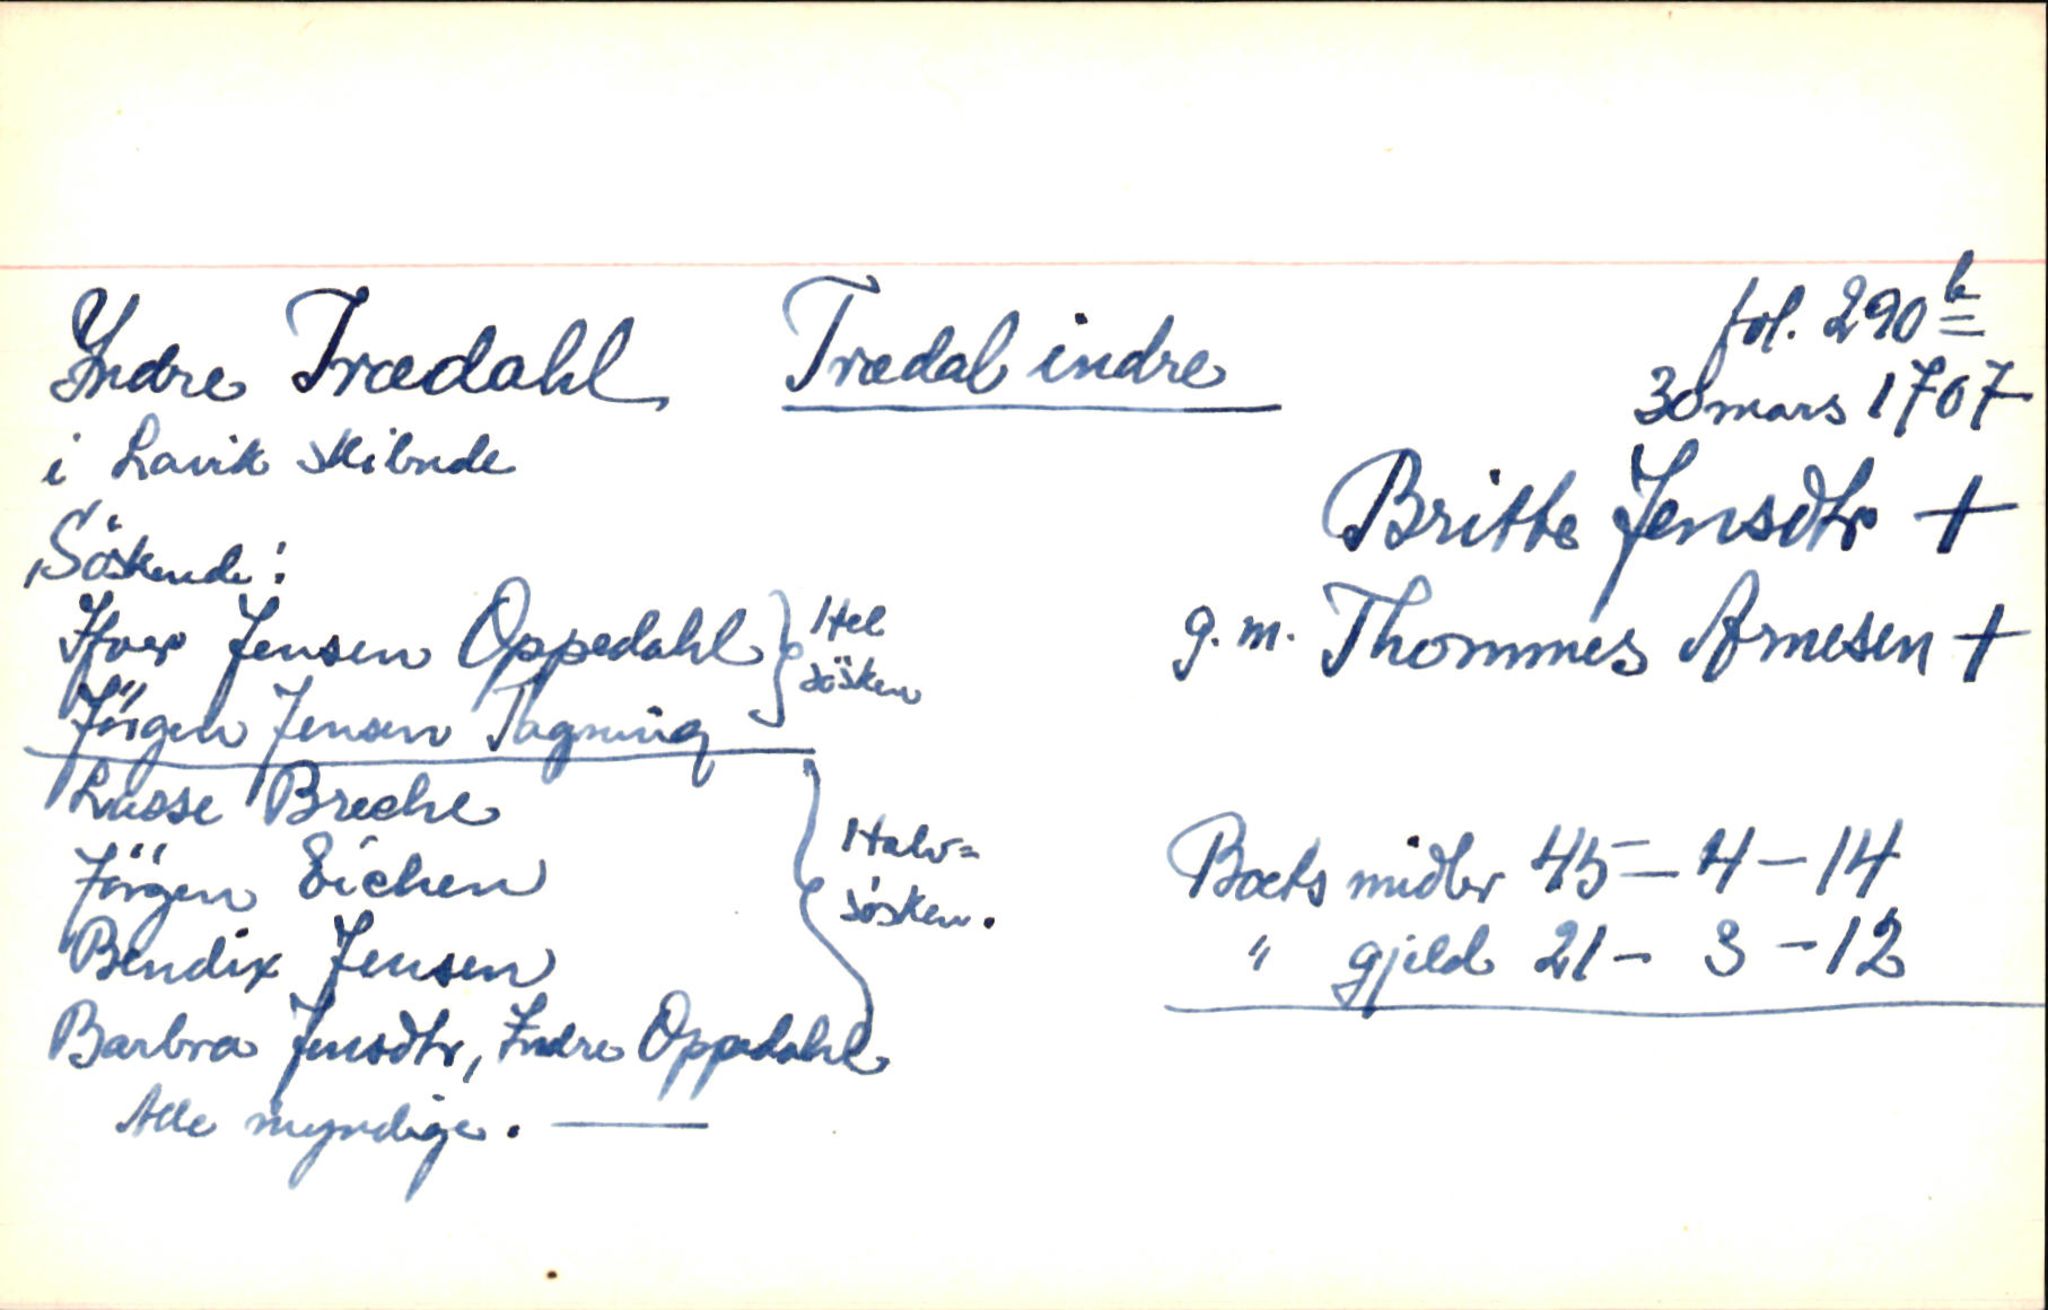 Yndre Trædahl
Trædal indre
fol. 290 b
30 mars 1707
i Lavik skibrede
Britte Jensdtr +
g. m. Thommes Arnesen +
Söskende:
Ifver Jensen Oppedahl
Jörgen Jensen Tagning
Hel
sösken
Lasse Breche
Jörgen Eichen
Bendix Jensen
Barbra Jensdtr, Indre Oppedahl
Halv=
sösken.
Alle myndige.
Boets midler 45 - 4 - 14
" gjeld 21 - 3 - 12